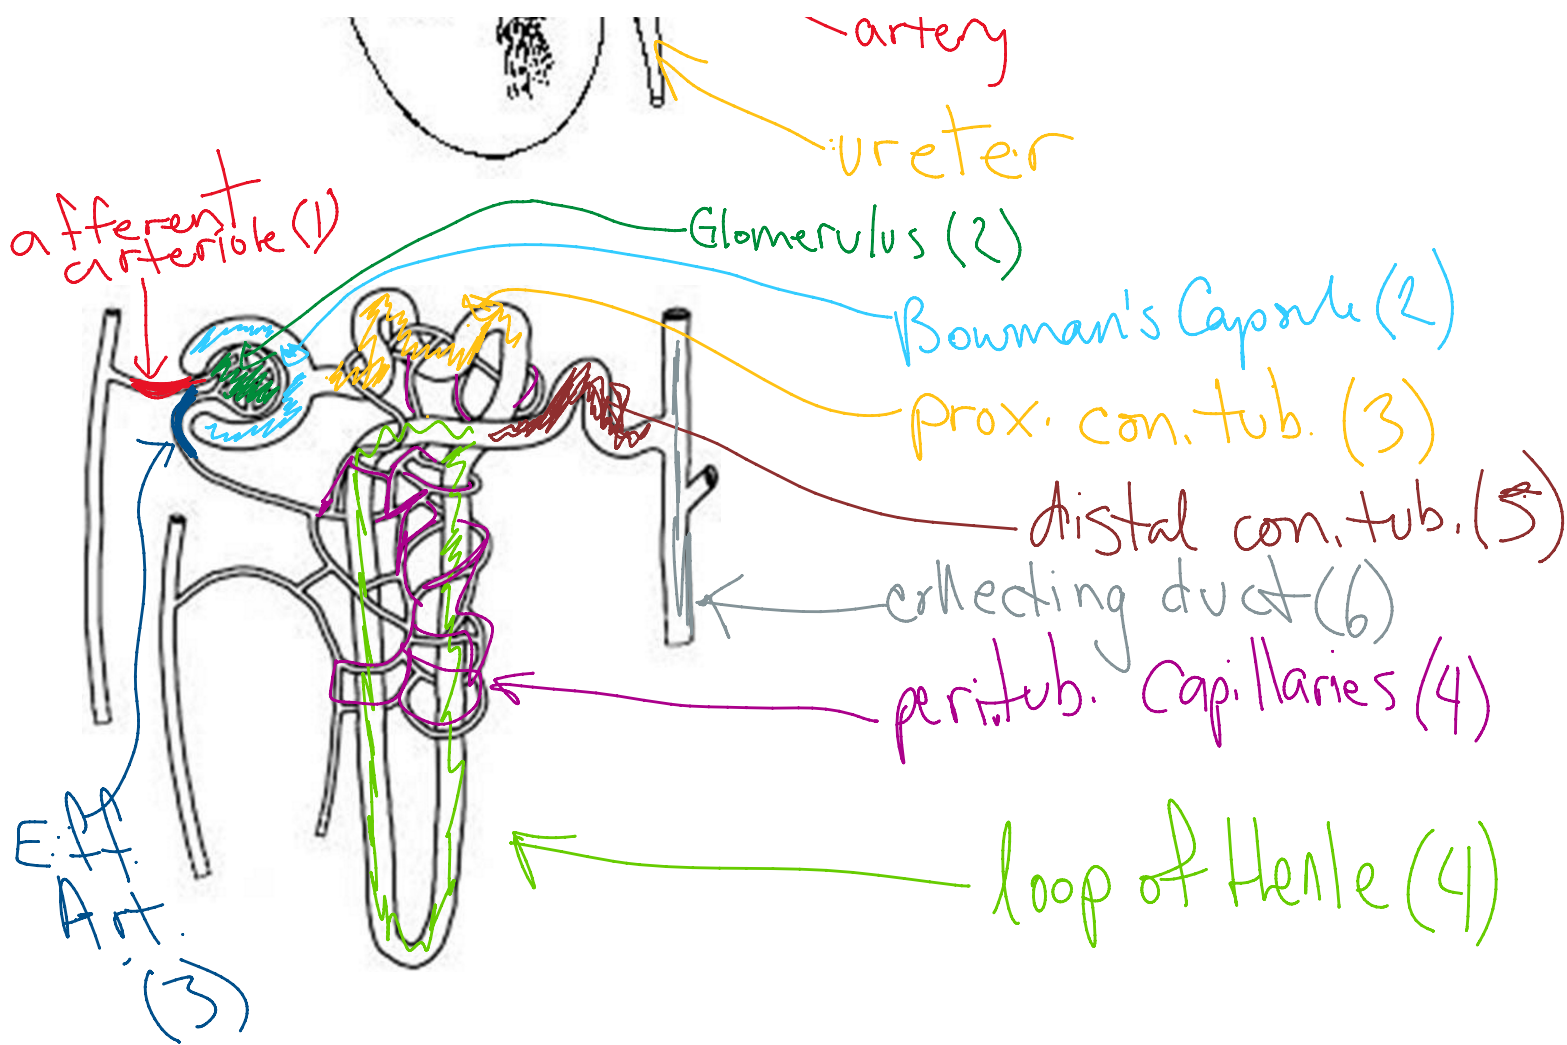 artery
ureter
afferent
arteriole (1)
Glomerulus (2)
Bowman's Capsule (2)
prox. con. tub. (3)
distal con. tub. (5)
collecting duct (6)
peri.tub. Capillaries (4)
loop of Henle (4)
Eff.
Art.
(3)